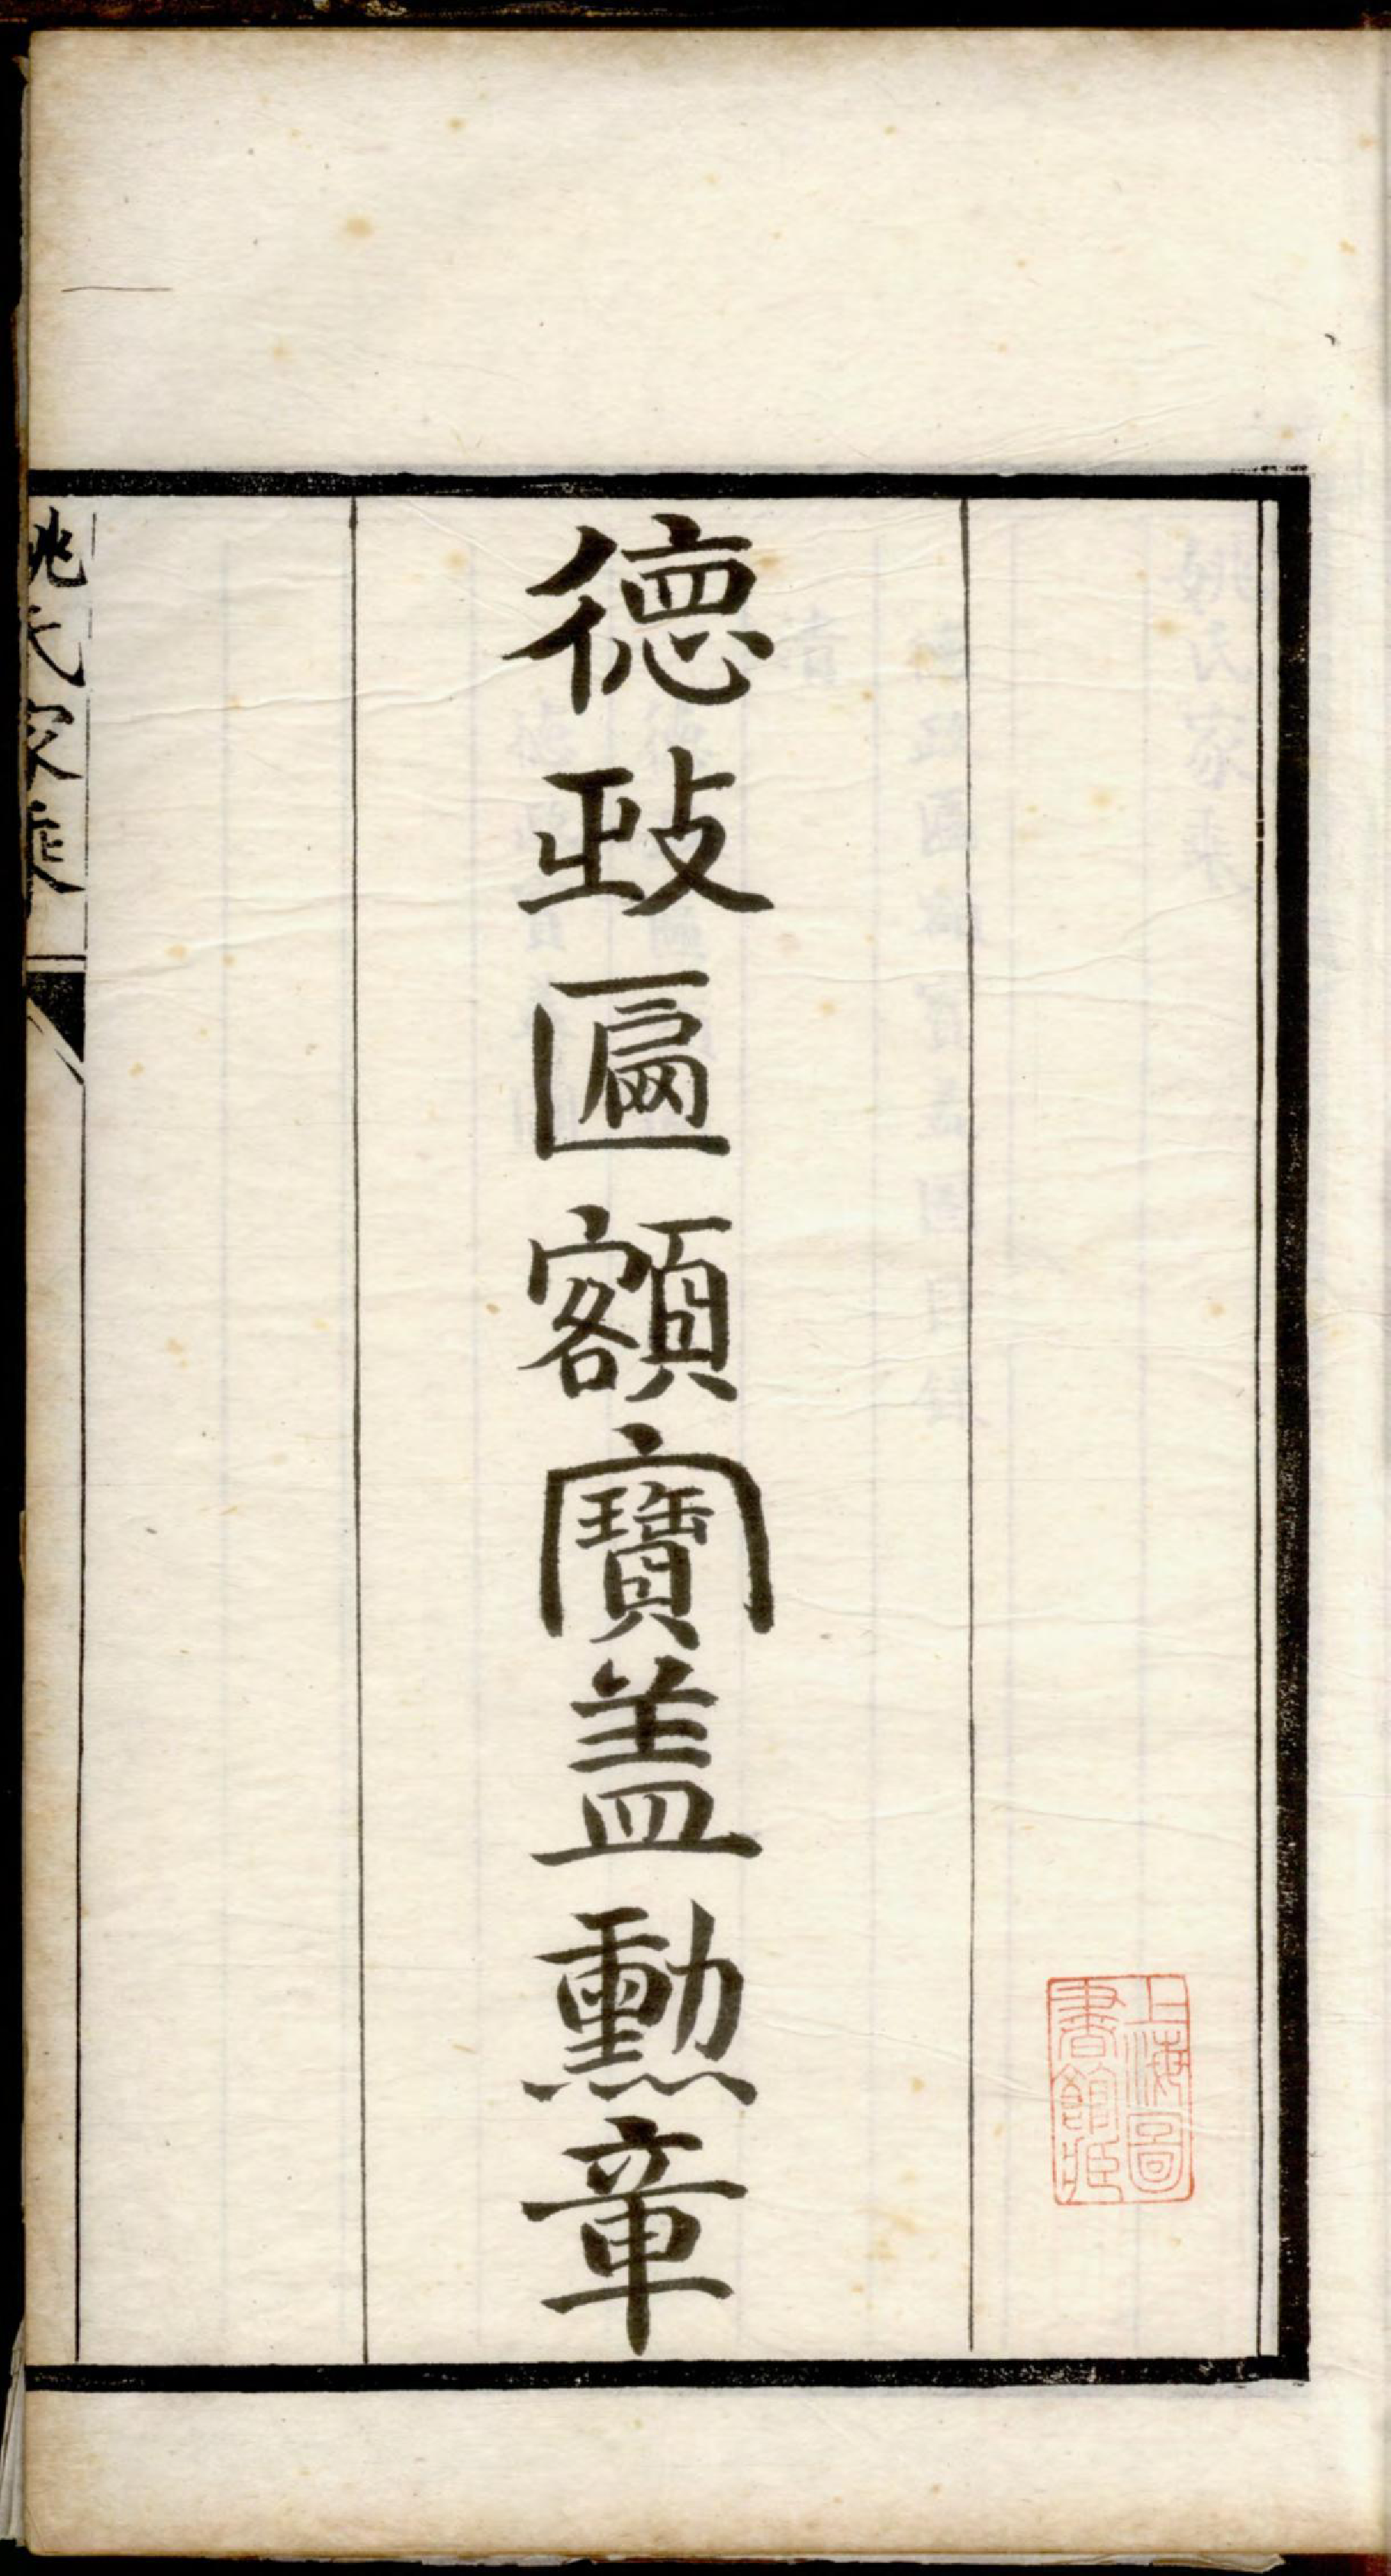 德政匾額寶盖勳章
上海圖
書館藏
姚氏家乘